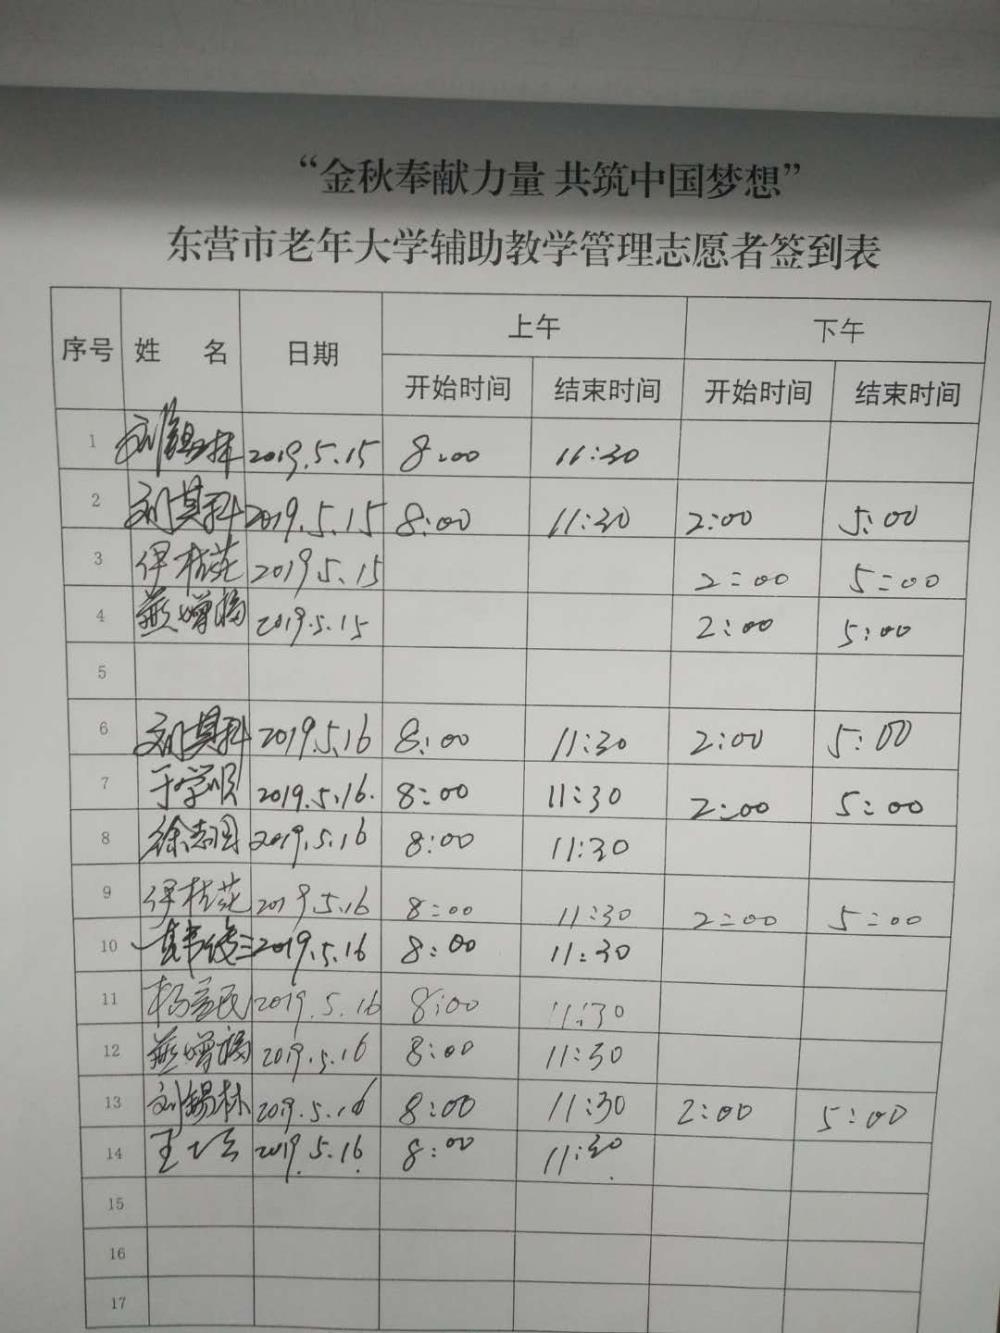 “金秋奉献力量 共筑中国梦想”
东营市老年大学辅助教学管理志愿者签到表
序号 姓 名 日期 上午 下午
开始时间 结束时间 开始时间 结束时间
1 刘锡林 2019.5.15 8:00 11:30
2 刘其科 2019.5.15 8:00 11:30 2:00 5:00
3 伊桂花 2019.5.15 2:00 5:00
4 燕增福 2019.5.15 2:00 5:00
5
6 刘其科 2019.5.16 8:00 11:30 2:00 5:00
7 于学顺 2019.5.16. 8:00 11:30 2:00 5:00
8 徐志国 2019.5.16 8:00 11:30
9 伊桂花 2019.5.16 8:00 11:30 2:00 5:00
10 2019.5.16 8:00 11:30
11 杨益民 2019.5.16 8:00 11:30
12 燕增福 2019.5.16 8:00 11:30
13 刘锡林 2019.5.16 8:00 11:30 2:00 5:00
14 2019.5.16 8:00 11:30
15
16
17